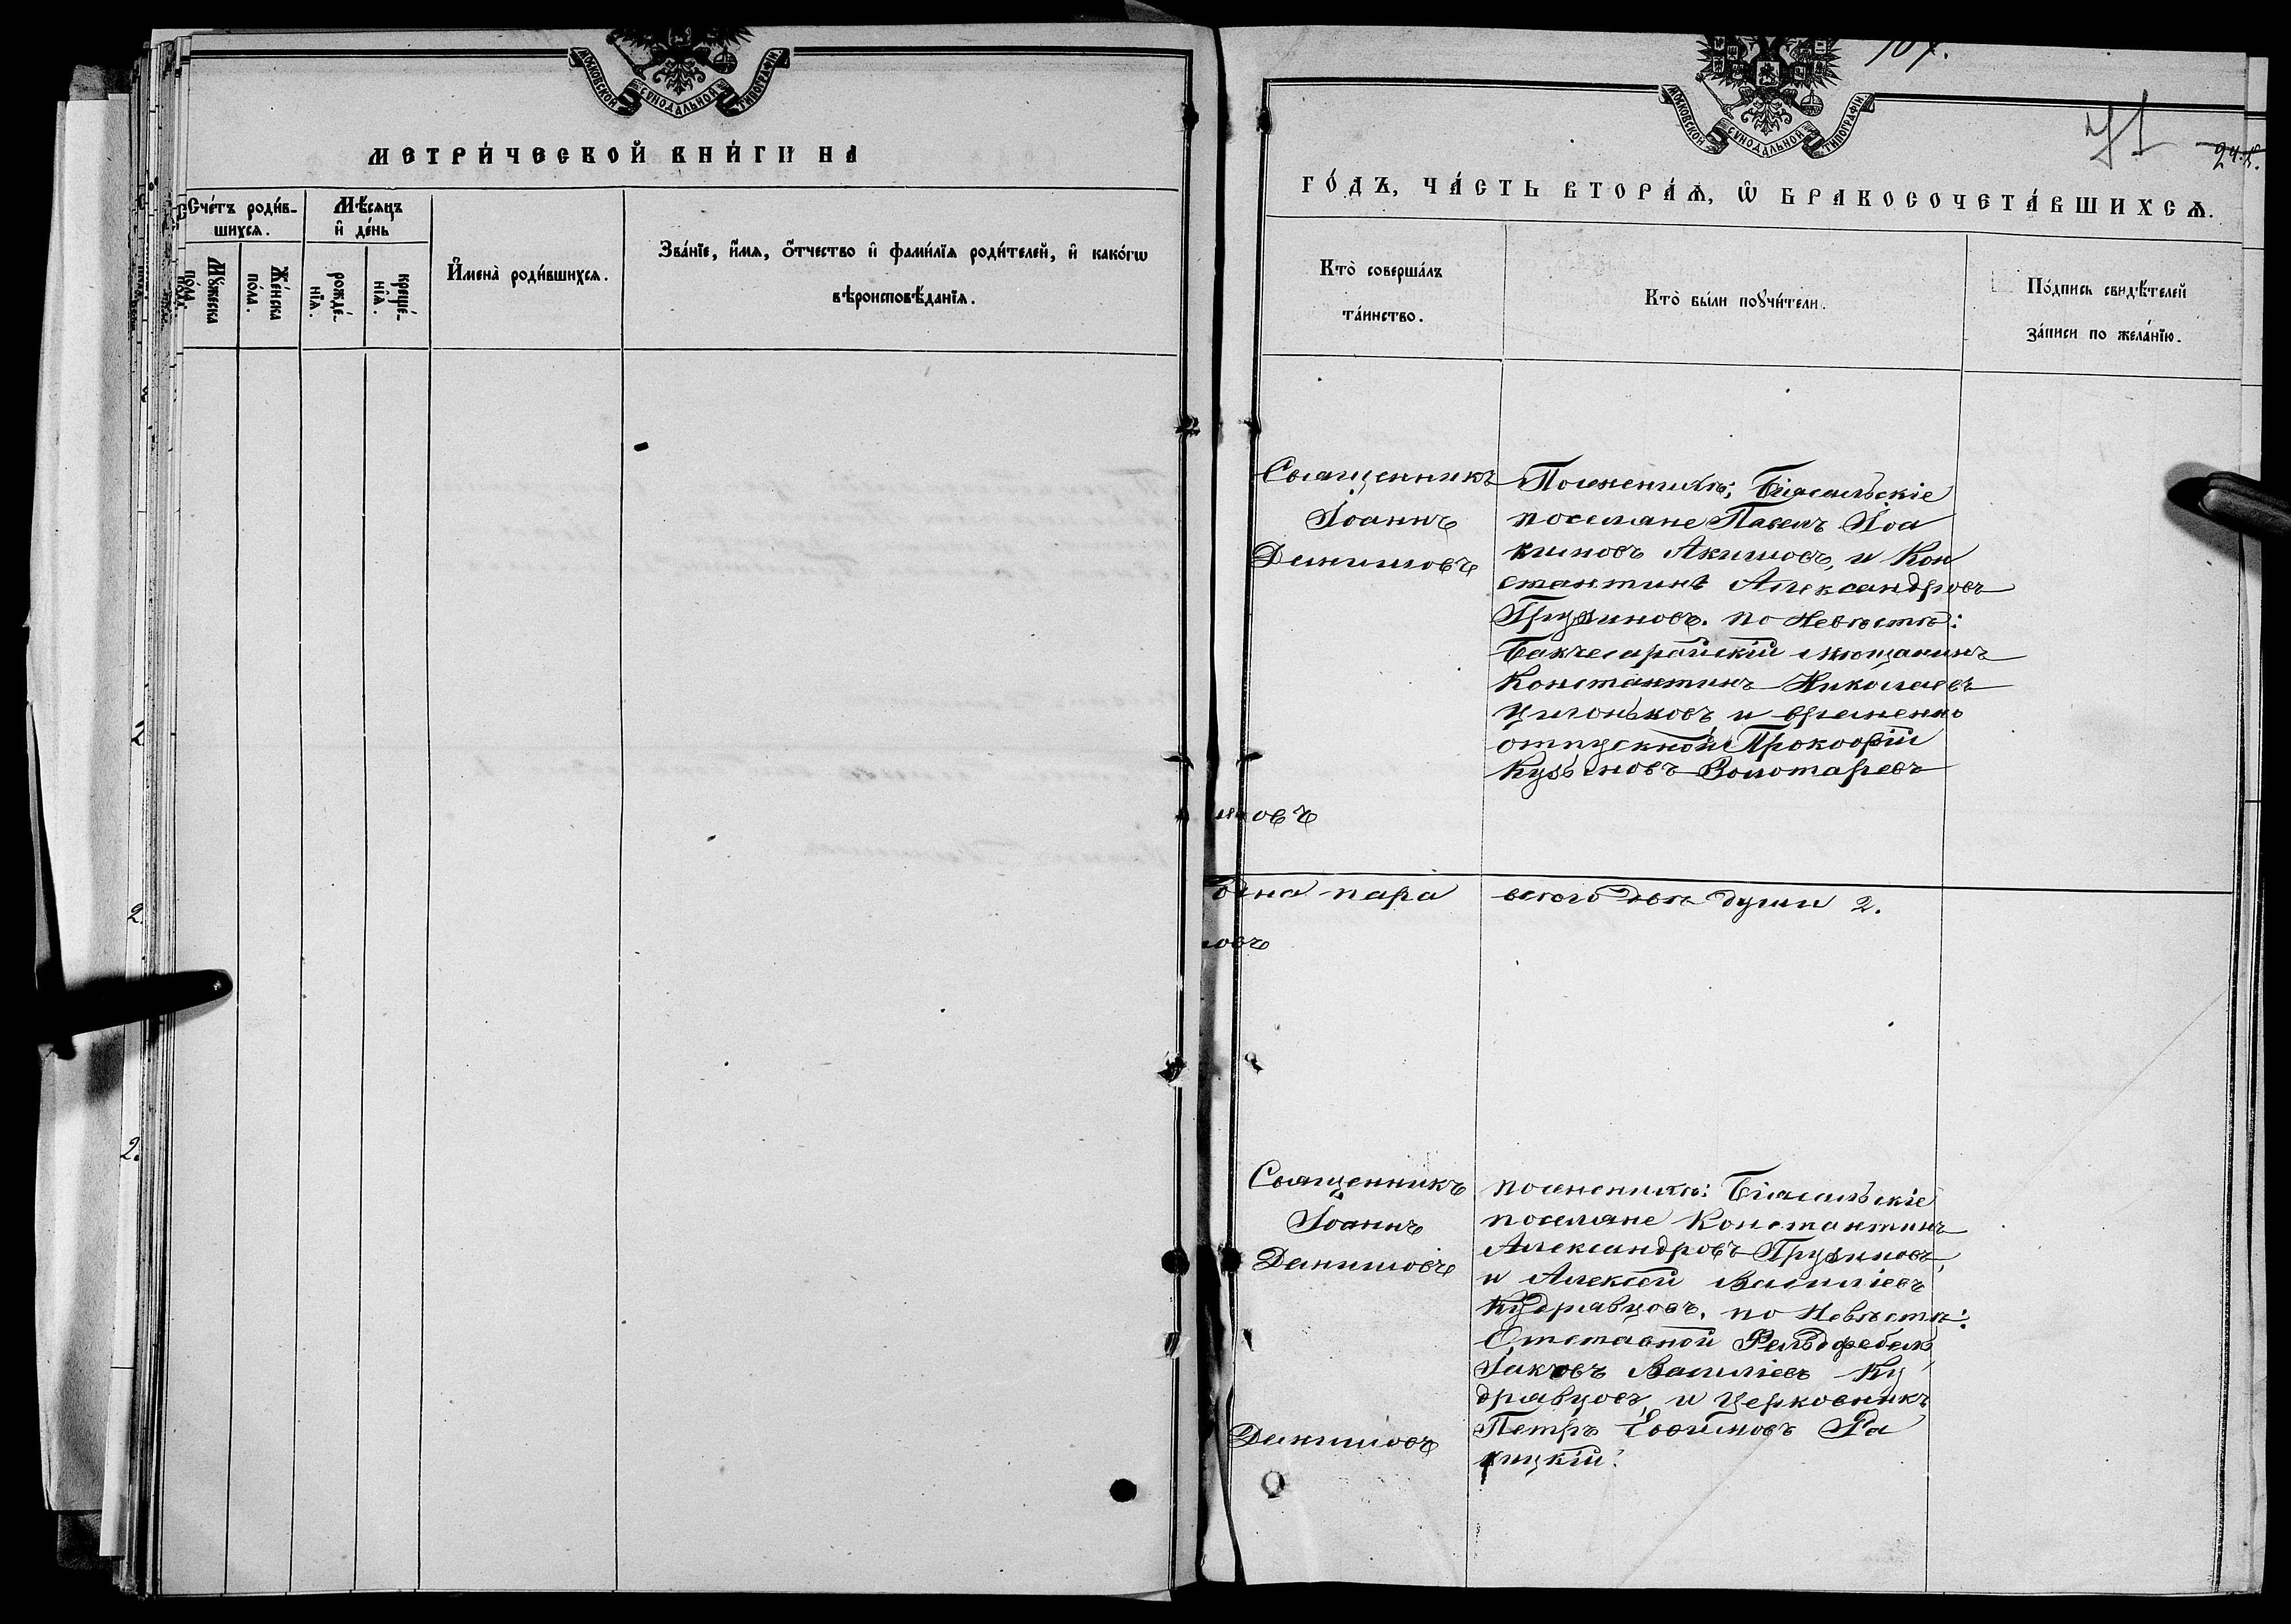 МОСКОВСКОЙ СУНОДАЛЬНОЙ ТИПОГРАФІИ.
МЕТРИ́ЧЕСКОЙ КНИ́ГИ НА
Сче́тъ роди́в-
шихсѧ.
Мꙋ́жеска
по́ла.
Же́нска
по́ла.
Мѣ́сѧцъ
и҆ де́нь
рожде́-
нїѧ.
креще́-
нїѧ.
И҆мена̀ роди́вшихсѧ.
Зва́нїе, и҆́мѧ, ѻ҆́тчество и҆ фами́лїѧ роди́телей, и҆ како́гѡ
вѣроисповѣ́данїѧ.
2
2.
2.
107.
МОСКОВСКОЙ СУНОДАЛЬНОЙ ТИПОГРАФІИ.
71
ГО́ДЪ, ЧА́СТЬ ВТОРА́Ѧ, Ѡ҆ БРАКОСОЧЕТА́ВШИХСѦ.
Кто̀ соверша́лъ
та́инство.
Кто̀ бы́ли поꙋчи́тели.
По́дпись свидѣ́телей
за́писи по жела́нїю.
Священникъ
Іоаннъ
Данииловъ
По женихѣ: Біасальскіе
поселяне Павелъ Іоа
кимовъ Акимовъ, и Кон
стантинъ Александровъ
Грузиновъ. по Невѣстѣ:
Бакчесарайскій мѣщанинъ
Константинъ Николаевъ
Цигоньковъ и временно
отпускной Прокофій
Кузьмовъ Золотаревъ
овъ
одна пара
всего двѣ души 2.
овъ
Священникъ
Іоаннъ
Данииловъ
по женихѣ: Біасальскіе
поселяне Константинъ
Александровъ Грузиновъ,
и Алексѣй Василіевъ
Кудрявцовъ. по Невѣстѣ:
Отставной Фельдфебель
Іаковъ Василіевъ Ку
дрявцовъ, и церковникъ
Петръ Евфимовъ Ра
кицкій.
Данииловъ